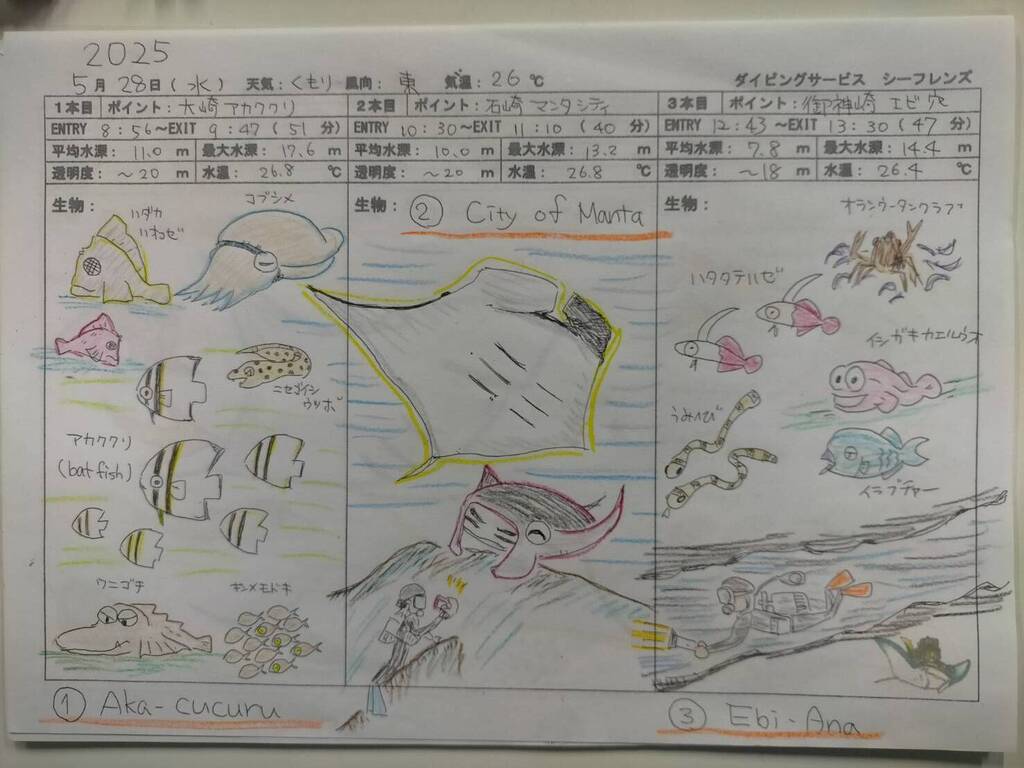 2025
5月 28日(水) 天気:くもり 風向:東 気温:26℃
ダイビングサービス シーフレンズ
1本目 ポイント:大崎アカククリ
ENTRY 8:56～EXIT 9:47(51分)
平均水深: 11.0 m 最大水深: 17.6 m
透明度: ～20 m 水温: 26.8 ℃
生物:
ハダカ
ハオコゼ
コブシメ
ニセゴイシ
ウツボ
アカククリ
(bat fish)
ワニゴチ
キンメモドキ
① Aka-cucuru
2本目 ポイント:石崎 マンタシティ
ENTRY 10:30～EXIT 11:10(40分)
平均水深: 10.0 m 最大水深: 13.2 m
透明度: ～20 m 水温: 26.8 ℃
生物:
② City of Manta
3本目 ポイント:御神崎 エビ穴
ENTRY 12:43～EXIT 13:30(47分)
平均水深: 7.8 m 最大水深: 14.4 m
透明度: ～18 m 水温: 26.4 ℃
生物:
オランウータンクラブ
ハタタテハゼ
イシガキカエルウオ
うみへび
イラブチャー
③ Ebi-Ana